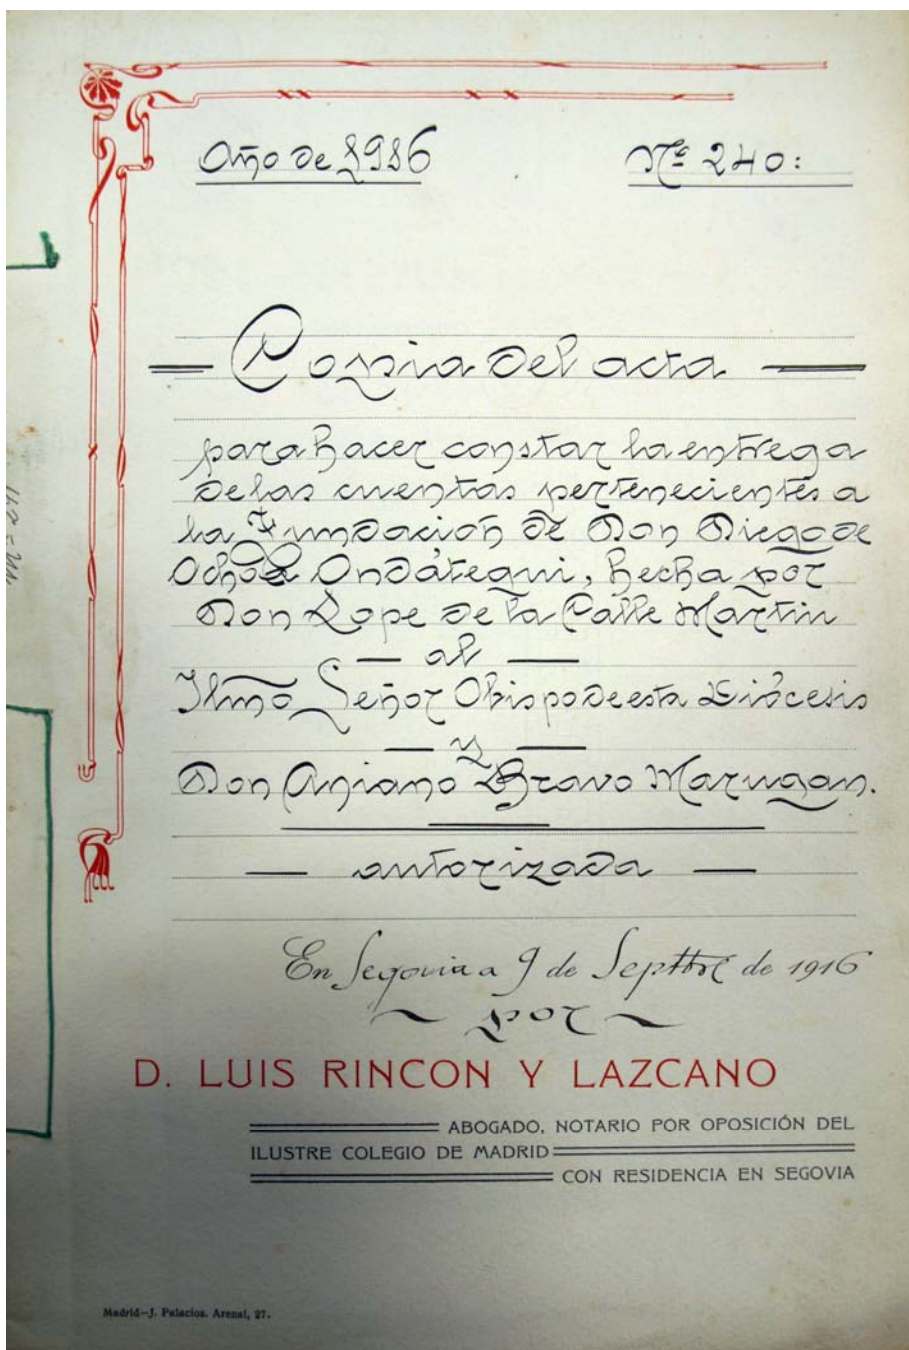 Año de 1916 Nº 240:
Copia del acta
para hacer constar la entrega
de las cuentas pertenecientes a
la Fundación de Don Diego de
Ochoa Ondátegui, hecha por
Don Lope de la Calle Martin
al
Ilmo Señor Obispo de esta Diócesis
y
Don Aniano Bravo Marugan.
autorizada
En Segovia a 9 de Septbre de 1916
por
D. LUIS RINCON Y LAZCANO
ABOGADO, NOTARIO POR OPOSICIÓN DEL
ILUSTRE COLEGIO DE MADRID
CON RESIDENCIA EN SEGOVIA
Madrid—J. Palacios. Arenal, 27.